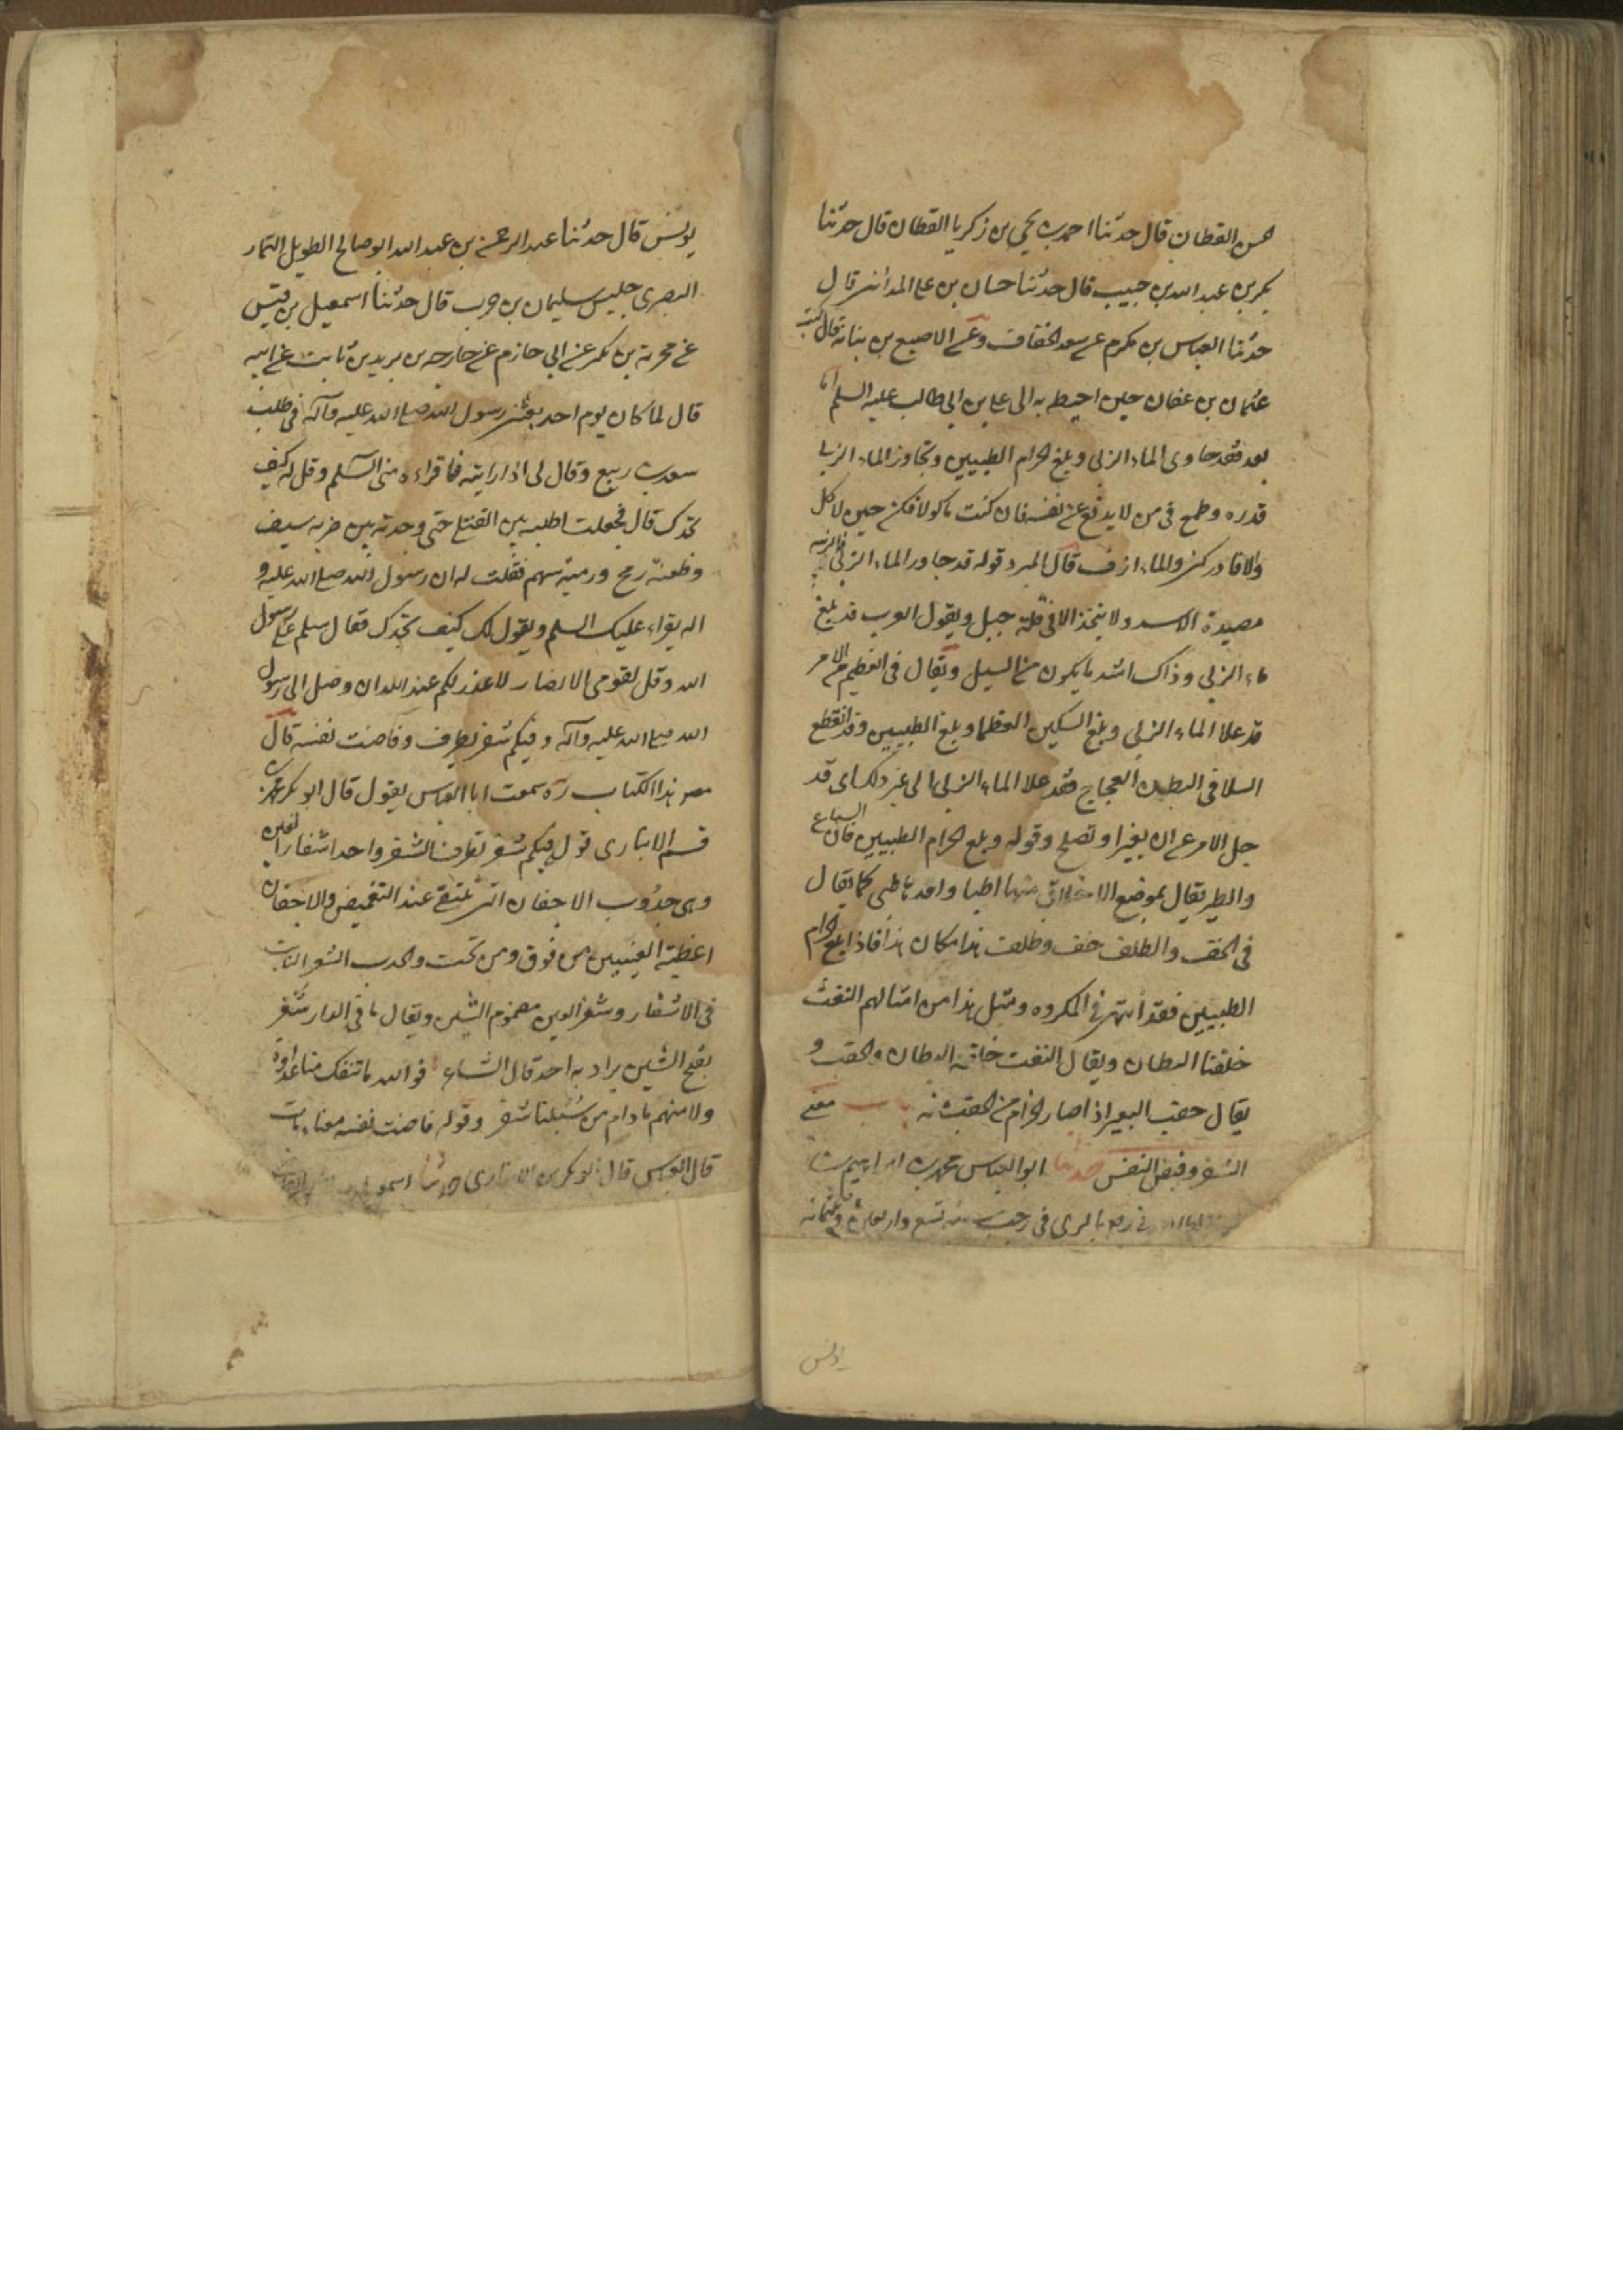 الحسن القطان قال حدثنا احمد بن يحيى بن زكريا القطان قال حدثنا
بكر بن عبد الله بن حبيب قال حدثنا حسان بن على المدائنى قال
حدثنا العباس بن مكرم عن سعد الخفاف عن الاصبغ بن نباته قال كتب
عثمان بن عفان حين احيط به الى على بن ابى طالب عليه السلم اما
بعد فقد جاوز الماء الزبى وبلغ الحزام الطبيين وتجاوز الماء الزبى
قدره وطمع فى من لا يدفع عن نفسه فان كنت ماكولا فكن خير اكل
والا فادركنى ولما امزق قال المبرد قوله قد جاوز الماء الزبى فالزبيه
مصيدة الاسد ولا يتخذ الا فى قلة جبل ويقول العرب قد بلغ
الماء الزبى وذاك اشد ما يكون من السيل ويقال فى العظيم من الامر
قد علا الماء الزبى وبلغ السكين العظم وبلغ الحزام الطبيين وقد انقطع
السلا فى البطن العجاج فقد علا الماء الزبى الى غير ذلك اى قد
جل الامر عن ان يغير او يصلح وقوله وبلغ الحزام الطبيين فان السباع
والطير يقال لموضع الاخلاف منها اطبا واحد ها طبى كما يقال
فى الخف والظلف خلف وظلف هذا مكان هذا فاذا بلغ الحزام
الطبيين فقد انتهى فى المكروه ومثل هذا من امثالهم التقت
حلقتا البطان ويقال التقت حلقة البطان والحقب و
يقال حقب البعير اذا صار الحزام فى الحقب منه باب معنى
الشفر وفيض النفس حدثنا ابو العباس محمد بن ابراهيم بن
فى رجب سنه تسع واربعين وثلثمائه
يونس
يونس قال حدثنا عبد الرحمن بن عبد الله ابو صالح الطويل التمار
البصرى جليس سليمان بن حرب قال حدثنا اسمعيل بن قيس
عن مخرمة بن بكير عن ابى حازم عن خارجه بن يزيد بن ثابت عن ابيه
قال لما كان يوم احد بعثنى رسول الله صلى الله عليه وآله فى طلب
سعد بن ربيع وقال لى اذا رايته فاقراءه منى السلم وقل له كيف
تجدك قال فجعلت اطلبه بين القتلى حتى وجدته بين ضربه سيف
وطعنة رمح ورمية سهم فقلت له ان رسول الله صلى الله عليه و
اله يقراء عليك السلم ويقول لك كيف تجدك فقال سلم على رسول
الله وقل لقومى الانصار لا عذر لكم عند الله ان وصل الى رسول
الله صلى الله عليه وآله وفيكم شفر يطرف وفاضت نفسه قال
مصنف هذا الكتاب ره سمعت ابا العباس يقول قال ابو بكر محمد بن
قسم الانبارى قوله وفيكم شفر يطرف الشفر واحد اشفار العين
وهى حروف الاجفان التى تلتقى عند التغميض والاجفان
اغطية العينين من فوق ومن تحت والهدب الشعر النابت
فى الاشفار وشفر العين مضموم الشين ويقال ما فى الدار شفر
بفتح الشين يراد به احد قال الشاعر فوالله ما تنفك منا عداوة
ولا منهم مادام من نسلنا شفر وقوله فاضت نفسه معناه مات
قال ابو العباس قال ابو بكر بن الانبارى حدثنا